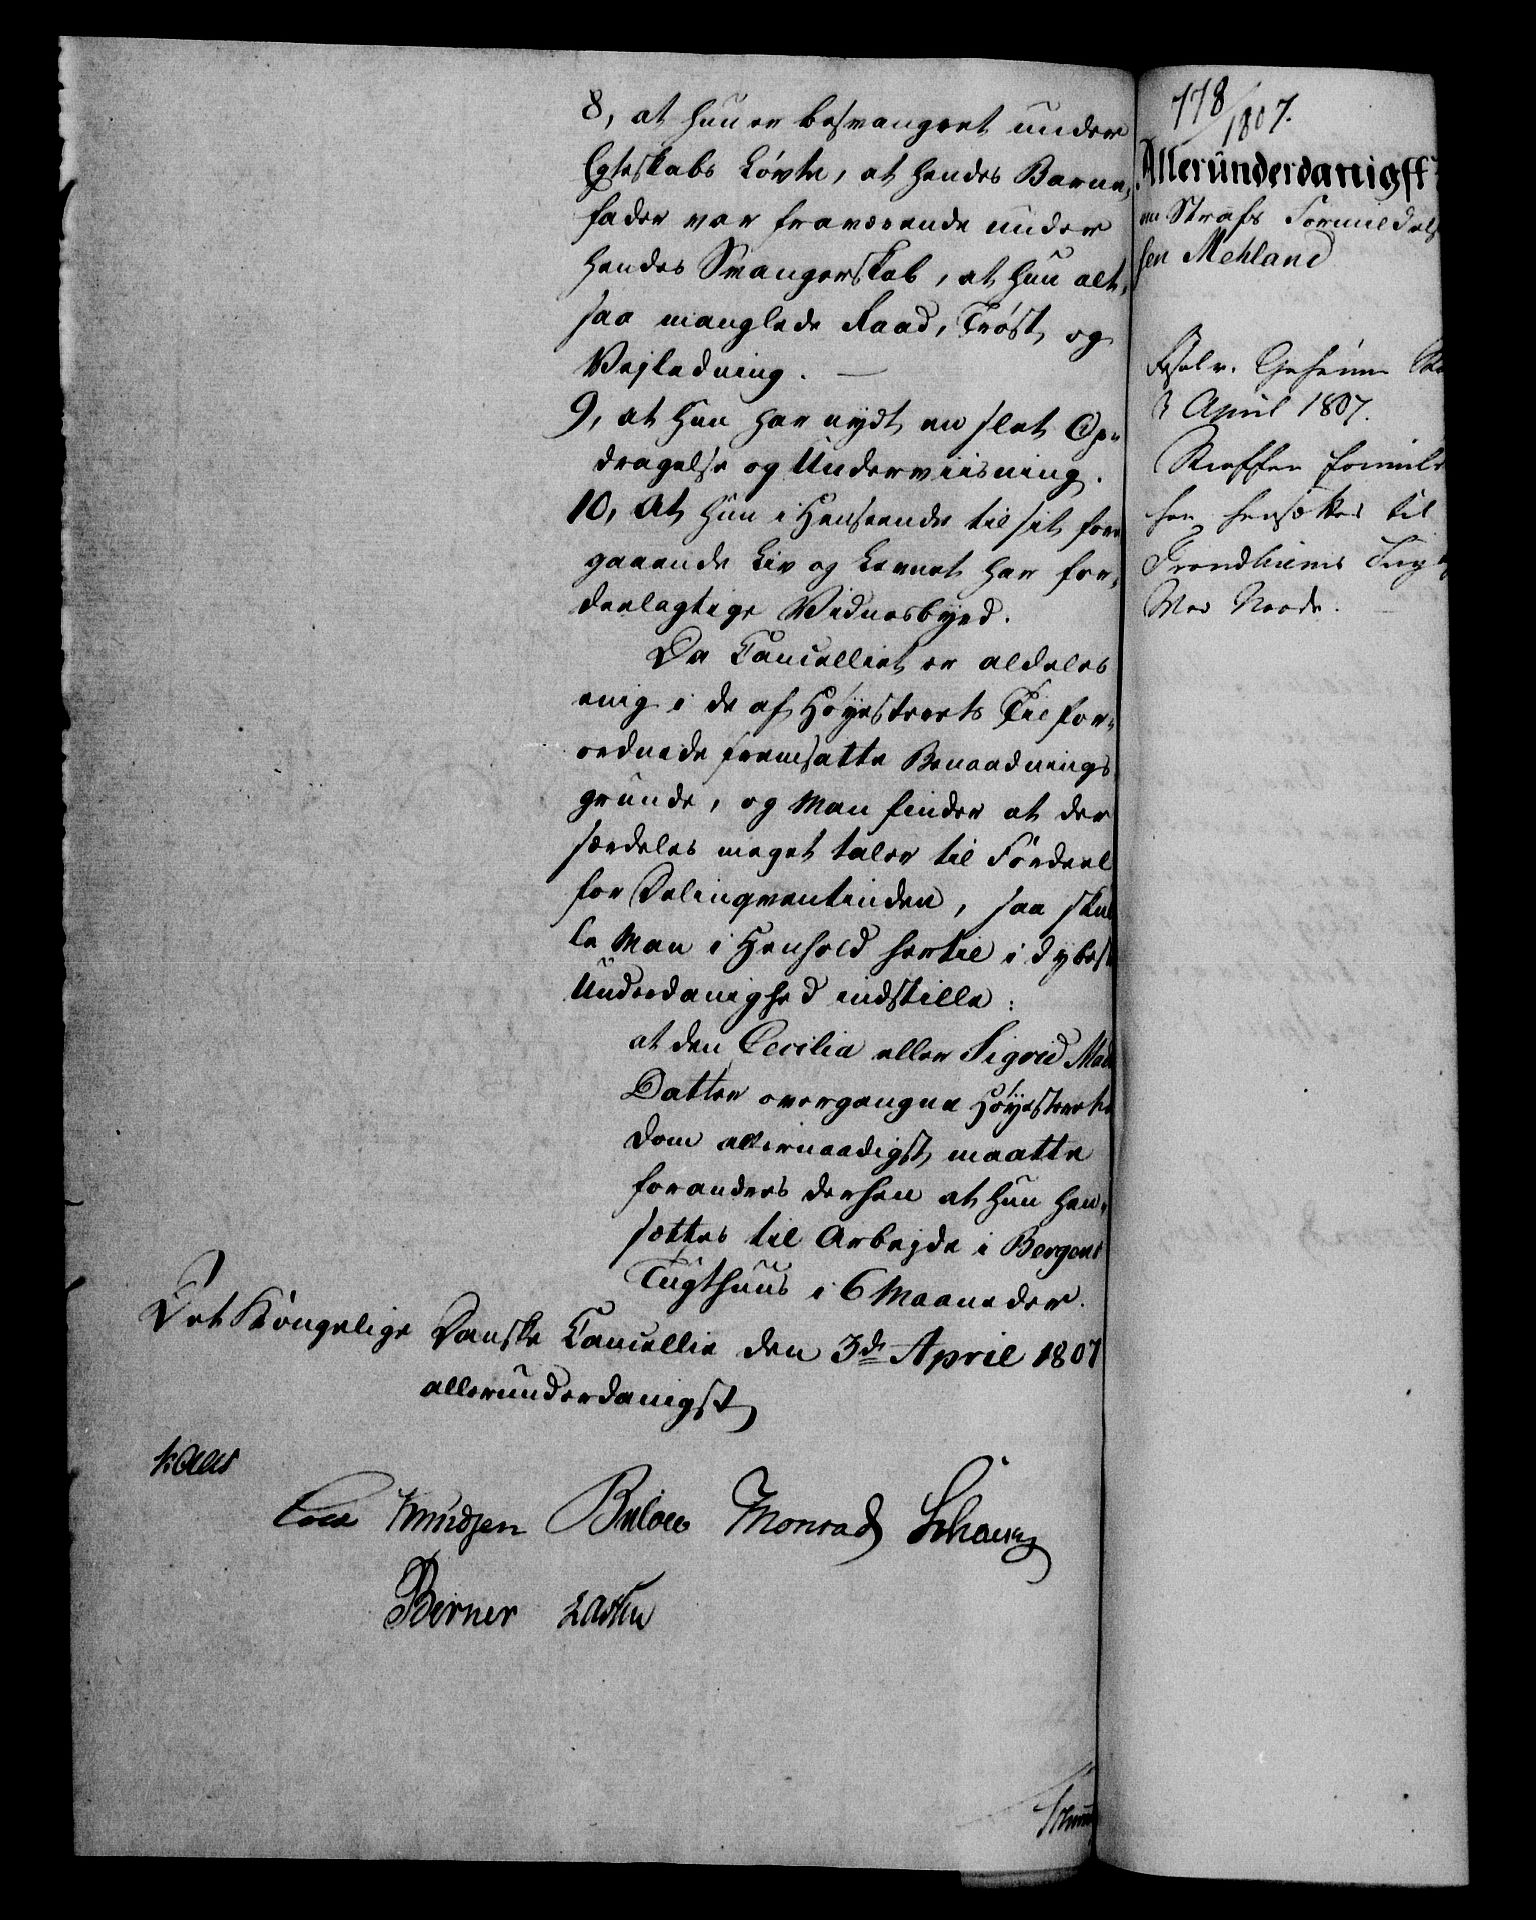 8, at hun er besvangret under
Egteskabs Løvte, at hendes Barne-
fader var fraværende under
hendes Svangerskab, at hun alt-
saa manglede Raad, Trøst og
Vejledning.
9, at Hun har nydt en slet Op-
dragelse og Underviisning.
10, At Hun i Henseende til sit fore
gaaende Liv og Levnet har for-
deelagtige Vidnesbyrd.
Da Cancelliet er aldeles
enig i de af Høyesterets Tilfor-
ordnede fremsatte Benaadnings
grunde, og Man finder at der
særdeles meget taler til Fordeel
for Delinqventinden, saa skul
le Man i Henhold hertil i dybest
Underdanighed indstille:
at den Cecilia eller Sigrid Mads
Datter overgangne Høyesterets
Dom allernaadigst maatte
forandres derhen at Hun hen-
sættes til Arbejde i Bergens
Tugthuus i 6 Maaneder.
Det Kongelige Danske Cancellie den 3de April 1807
allerunderdanigst
Kaas
Cold Knudsen Bülow Monrad Schønn
Berner Lassen
778/1807.
Allerunderdanigst
om Strafs Formildels
sen Mehland
Resolv. Geheime
3 April 1807.
Straffen formild
hen hensættes til
Trondhiems Tugt